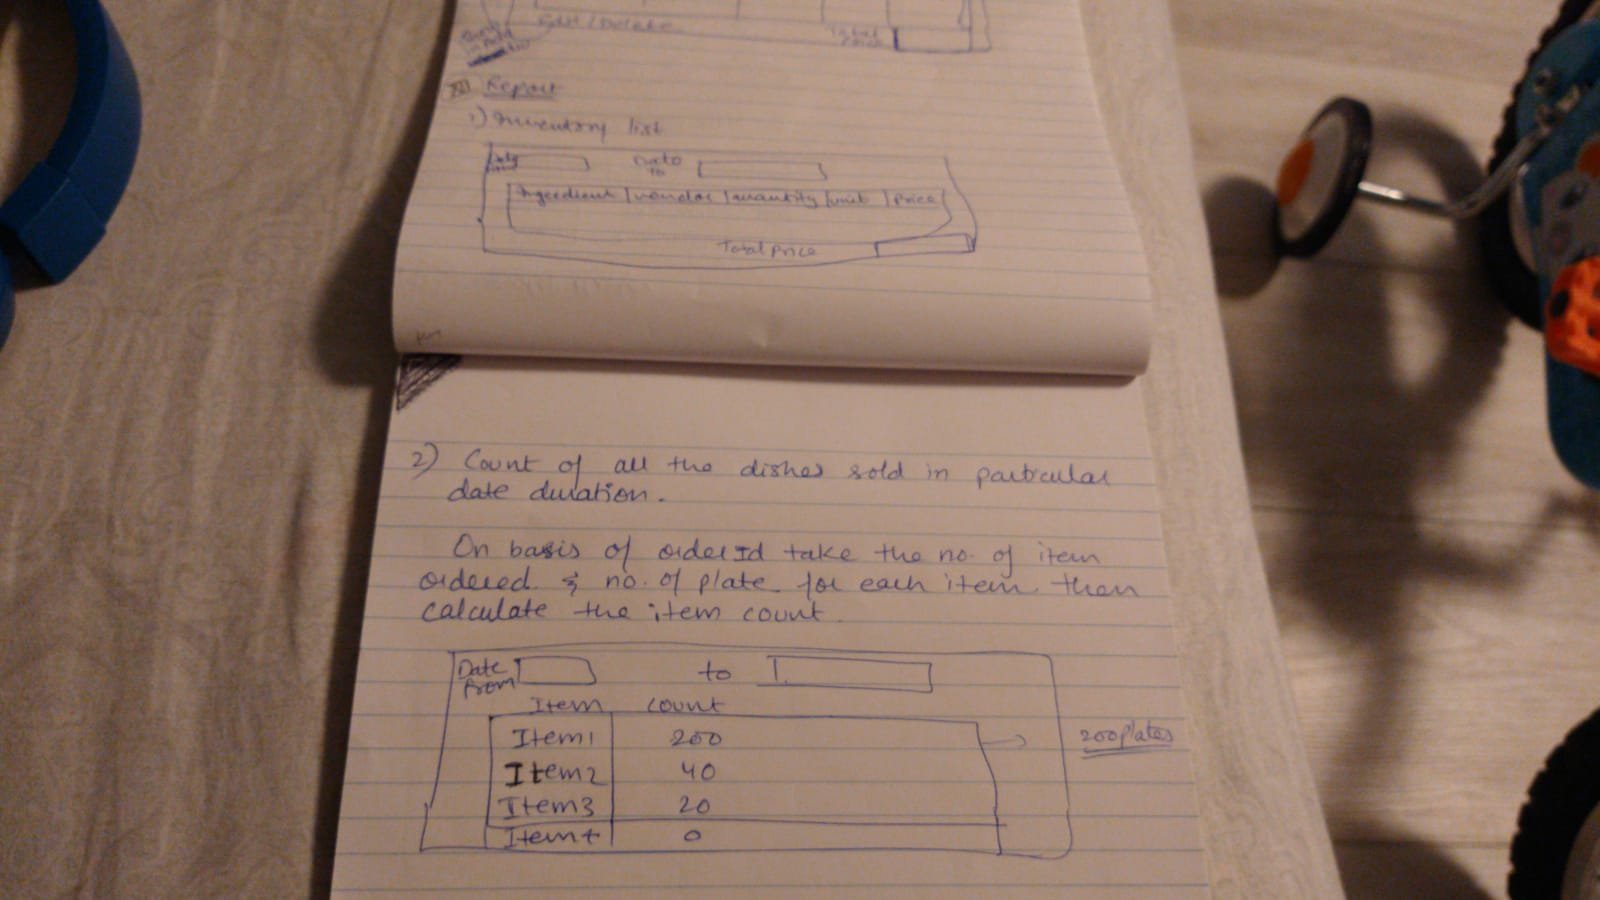 Edit / Delete
Total Price
XI Report
1) Inventory list
Date
Date to
Ingredient vendor quantity unit price
Total price
2) Count of all the dishes sold in particular
date duration.
On basis of order Id take the no. of item
ordered & no. of plate for each item then
calculate the item count.
Date from to
Item count
Item1 200 → 200 plates
Item2 40
Item3 20
Item4 0